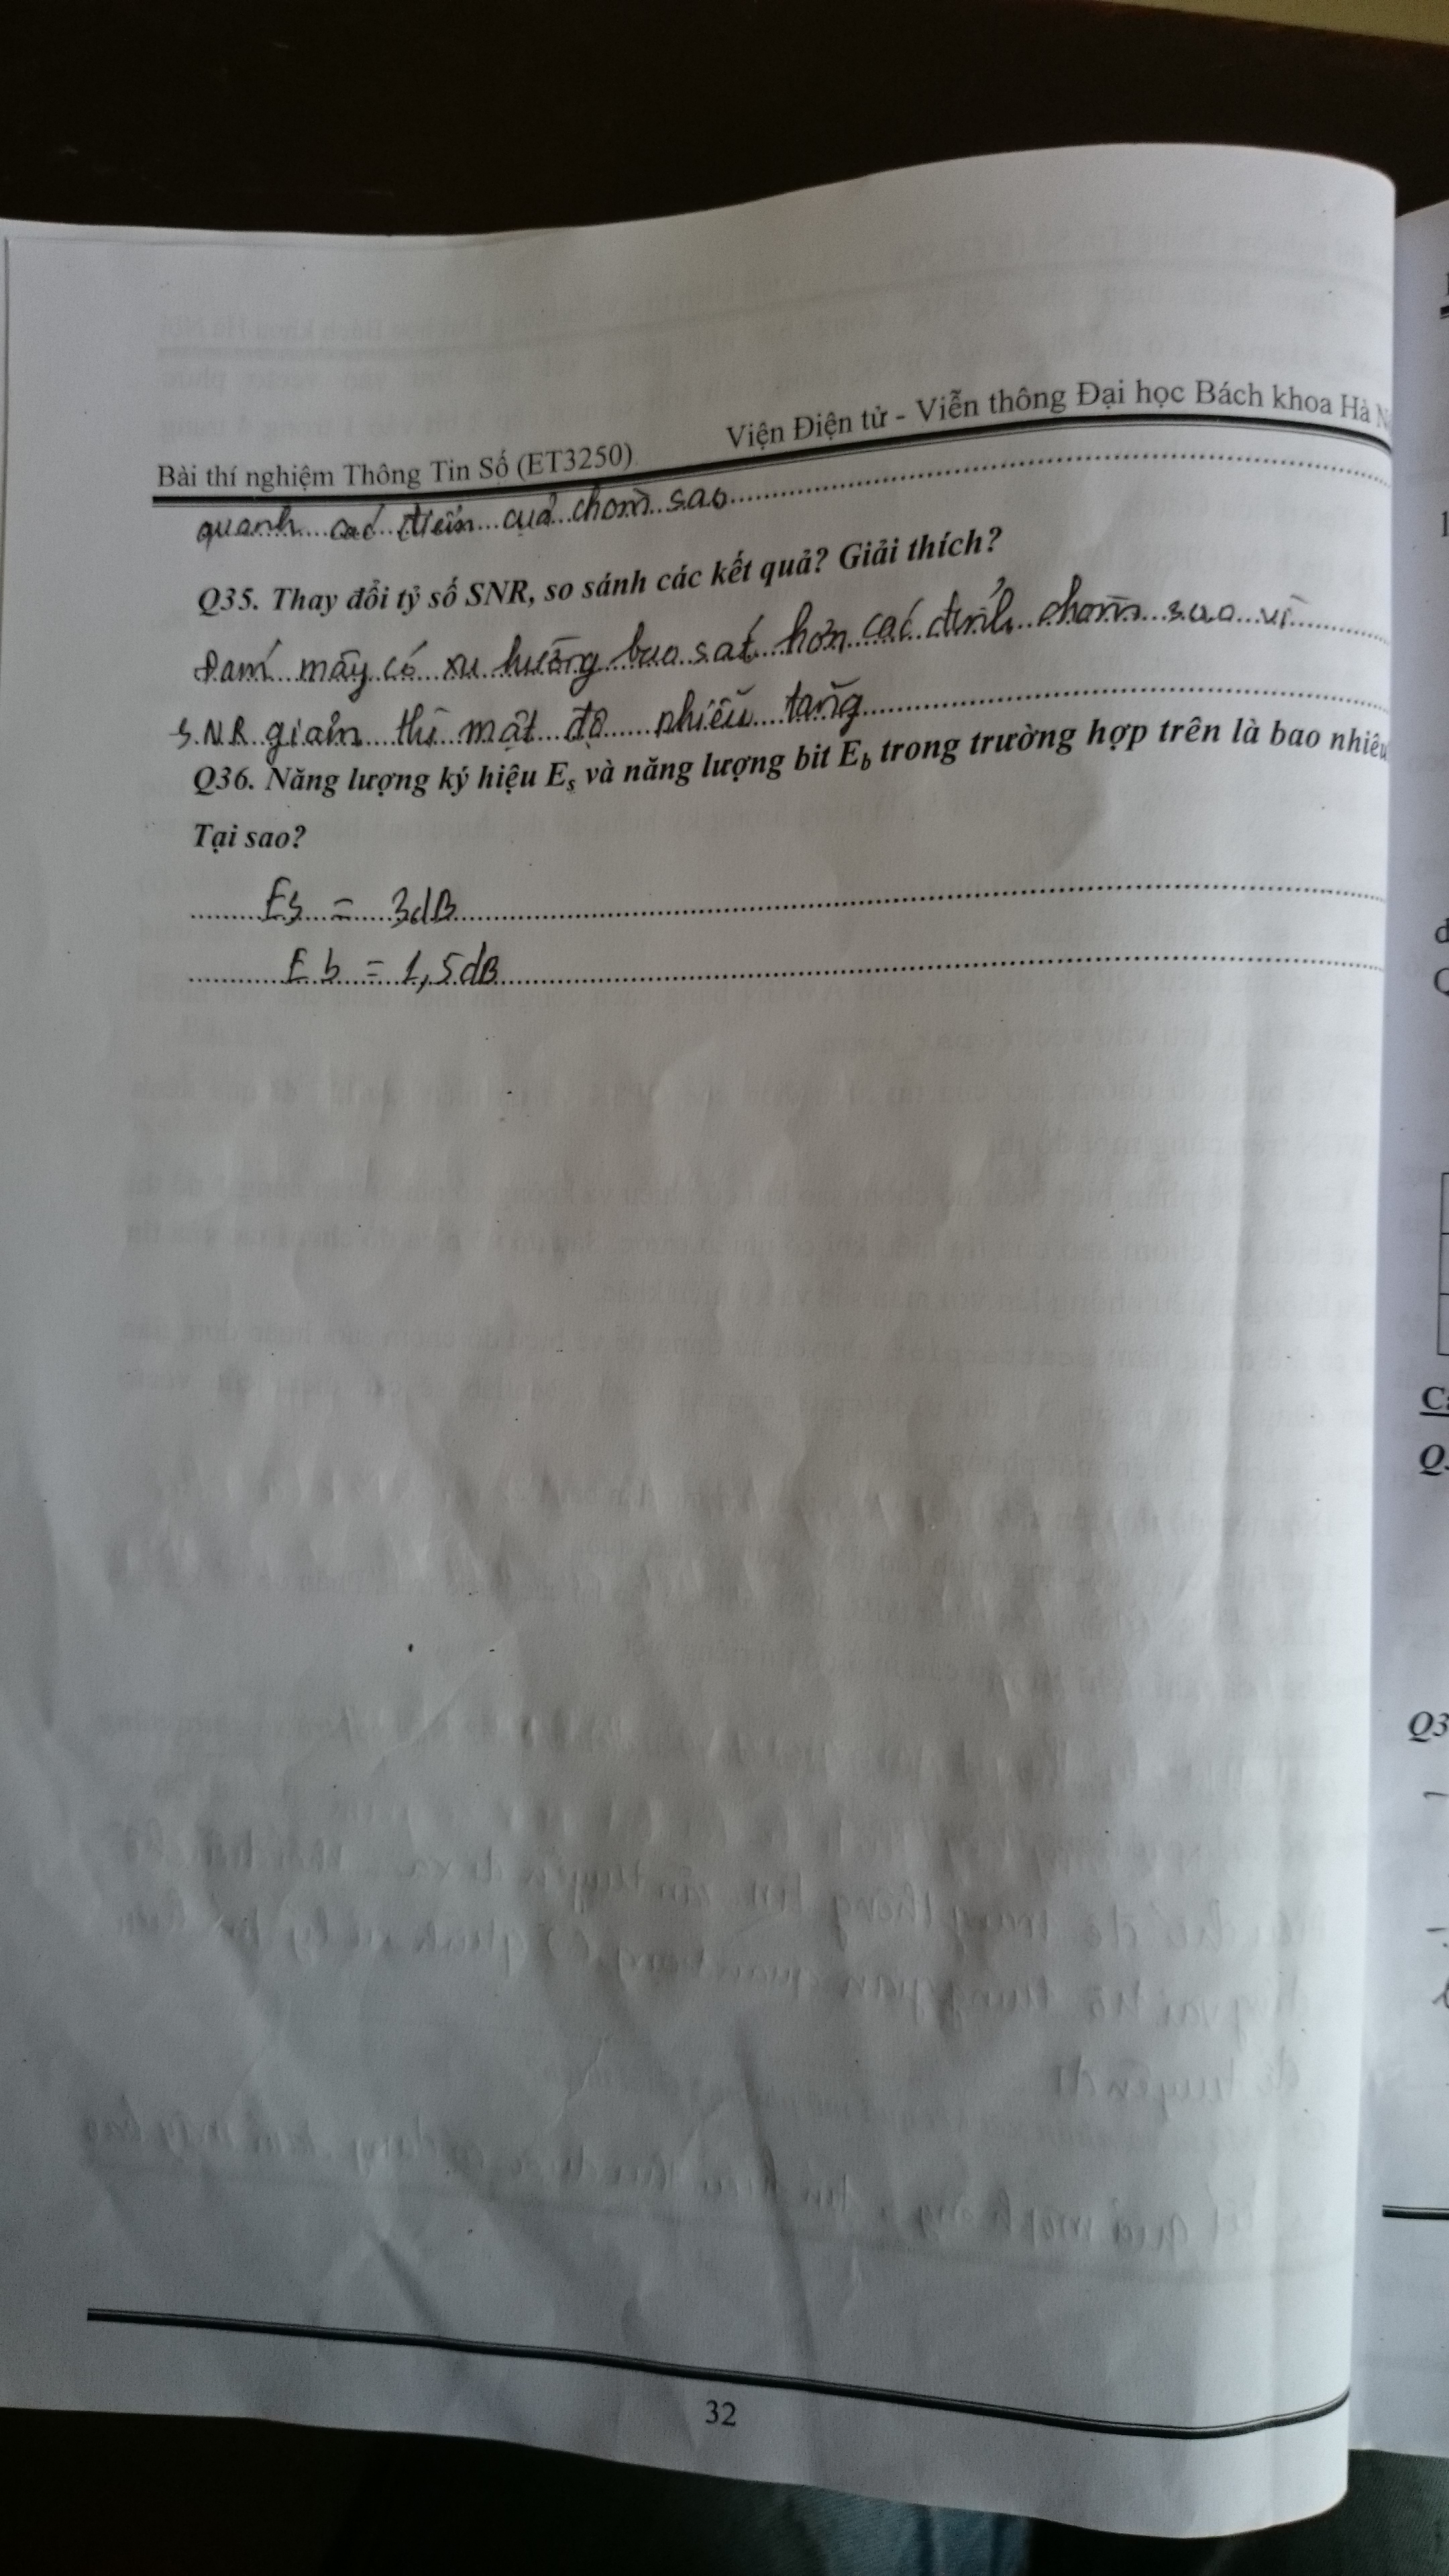 Bài thí nghiệm Thông Tin Số (ET3250) Viện Điện tử - Viễn thông Đại học Bách khoa Hà N
quanh các điểm của chòm sao
Q35. Thay đổi tỷ số SNR, so sánh các kết quả? Giải thích?
Đám mây có xu hướng bao sát hơn các đỉnh chòm sao vì
SNR giảm thì mật độ nhiễu tăng
Q36. Năng lượng ký hiệu Es và năng lượng bit Eb trong trường hợp trên là bao nhiêu
Tại sao?
Es = 3dB
Eb = 1,5dB
32
Q3